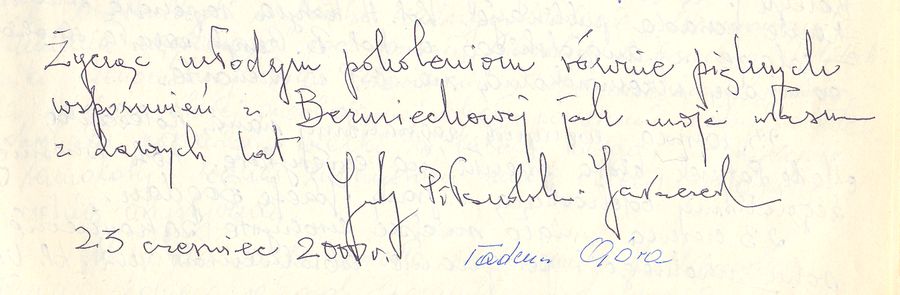 Życząc młodym pokoleniom równie pięknych
wspomnień z Bezmiechowej jak moje własne
z dawnych lat
Piłsudska-Jaraczewska
23 czerwiec 2000 r.
Tadeusz Góra